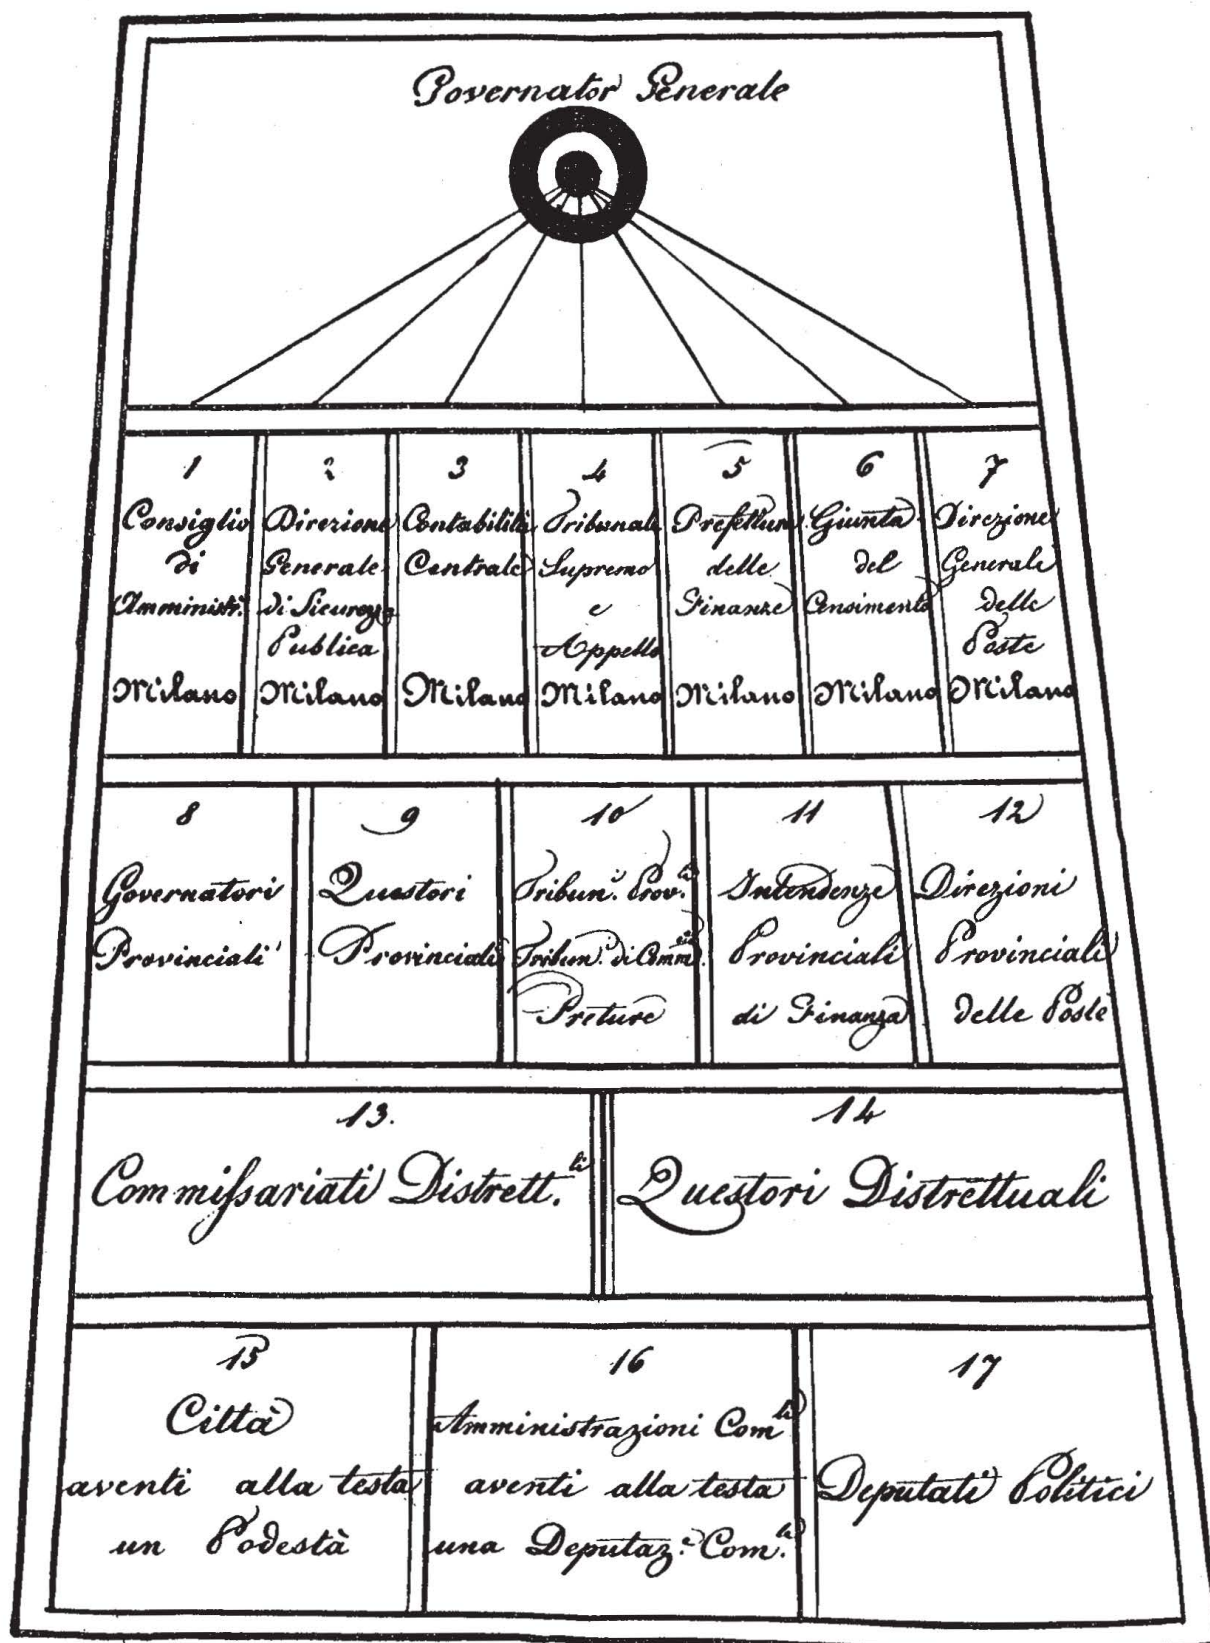 Governator Generale
1
Consiglio
di
Amministr.
Milano
2
Direzione
Generale
di Sicurezza
Publica
Milano
3
Contabilità
Centrale
Milano
4
Tribunale
Supremo
e
Appello
Milano
5
Prefettura
delle
Finanze
Milano
6
Giunta
del
Censimento
Milano
7
Direzione
Generale
delle
Poste
Milano
8
Governatori
Provinciali
9
Questori
Provinciali
10
Tribun.i Prov.li
Tribun.i di Comm.cio
Preture
11
Intendenze
Provinciali
di Finanza
12
Direzioni
Provinciali
delle Poste
13.
Commissariati Distrett.li
14
Questori Distrettuali
15
Città
aventi alla testa
un Podestà
16
Amministrazioni Com.li
aventi alla testa
una Deputaz.e Com.le
17
Deputati Politici